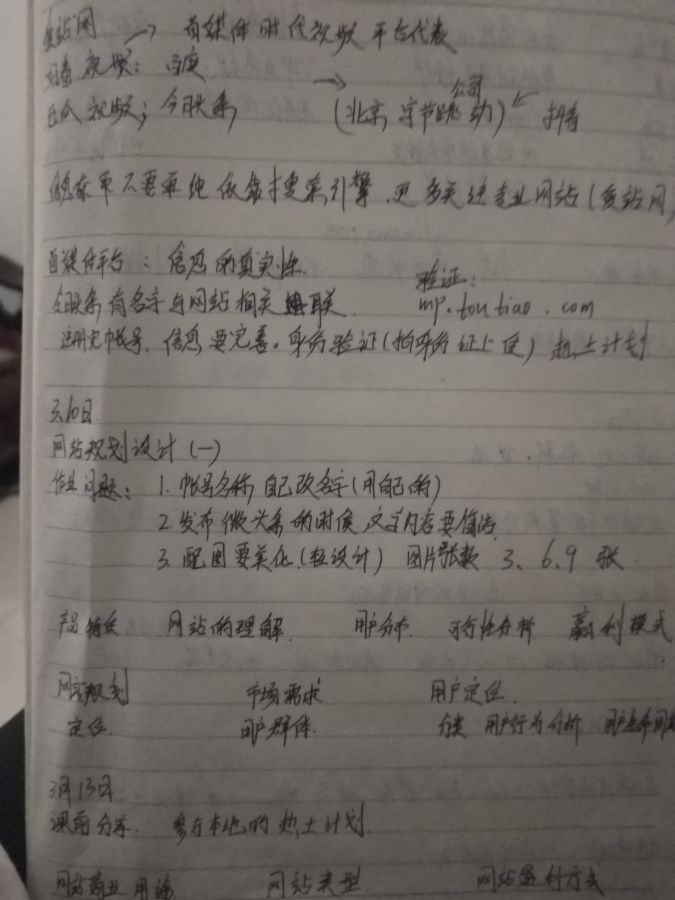 自媒体时代视频平台代表
好看视频：百度
西瓜视频；今日头条 → (北京，字节跳动) 公司 ← 抖音
不要单纯依靠搜索引擎，更多关注专业网站(
自媒体平台：信息的真实性. 验证：
今日头条有名字与网站相关联. mp.toutiao.com
帐号，信息要完善。身份验证(拍身份证上传) 热土计划
3.10日
网站规划设计(一)
作业问题： 1. 帐号名称，自己改名字(用自己的)
2. 发布微头条的时候，文字内容要
3. 配图要美化.(轻设计) 图片张数 3、6、9 张
产品 网站的理解. 用户分布. 可行性分析 赢利模式
网站规划 市场需求 用户定位.
定位. 用户群体. 分类 用户行为分析
3月13日
课前分享. 参与本地的热土计划.
网站商业用途 网站类型 网站盈利方式